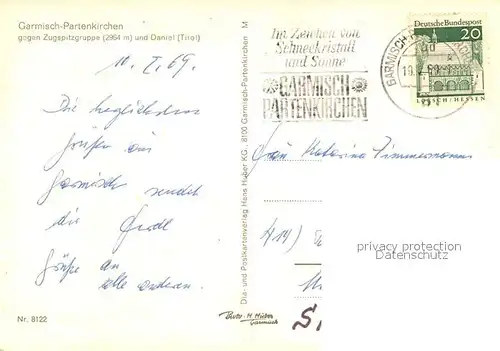 Garmisch-Partenkirchen
gegen Zugspitzgruppe (2964 m) und Daniel (Tirol)
10. I. 69.
Die herzlichsten
Grüßen aus
Garmisch sendet
dir Gerdl
Grüße an
alle anderen.
Nr. 8122
Dia- und Postkartenverlag Hans Huber KG. 8100 Garmisch-Partenkirchen M
Photo-H. Huber
Garmisch
Im Zeichen von
Schneekristall
und Sonne
GARMISCH
PARTENKIRCHEN
GARMISCH-P
Deutsche Bundespost
20
LORSCH/HESSEN
Frau Katarina Zimmermann
414)
privacy protection
Datenschutz
S.